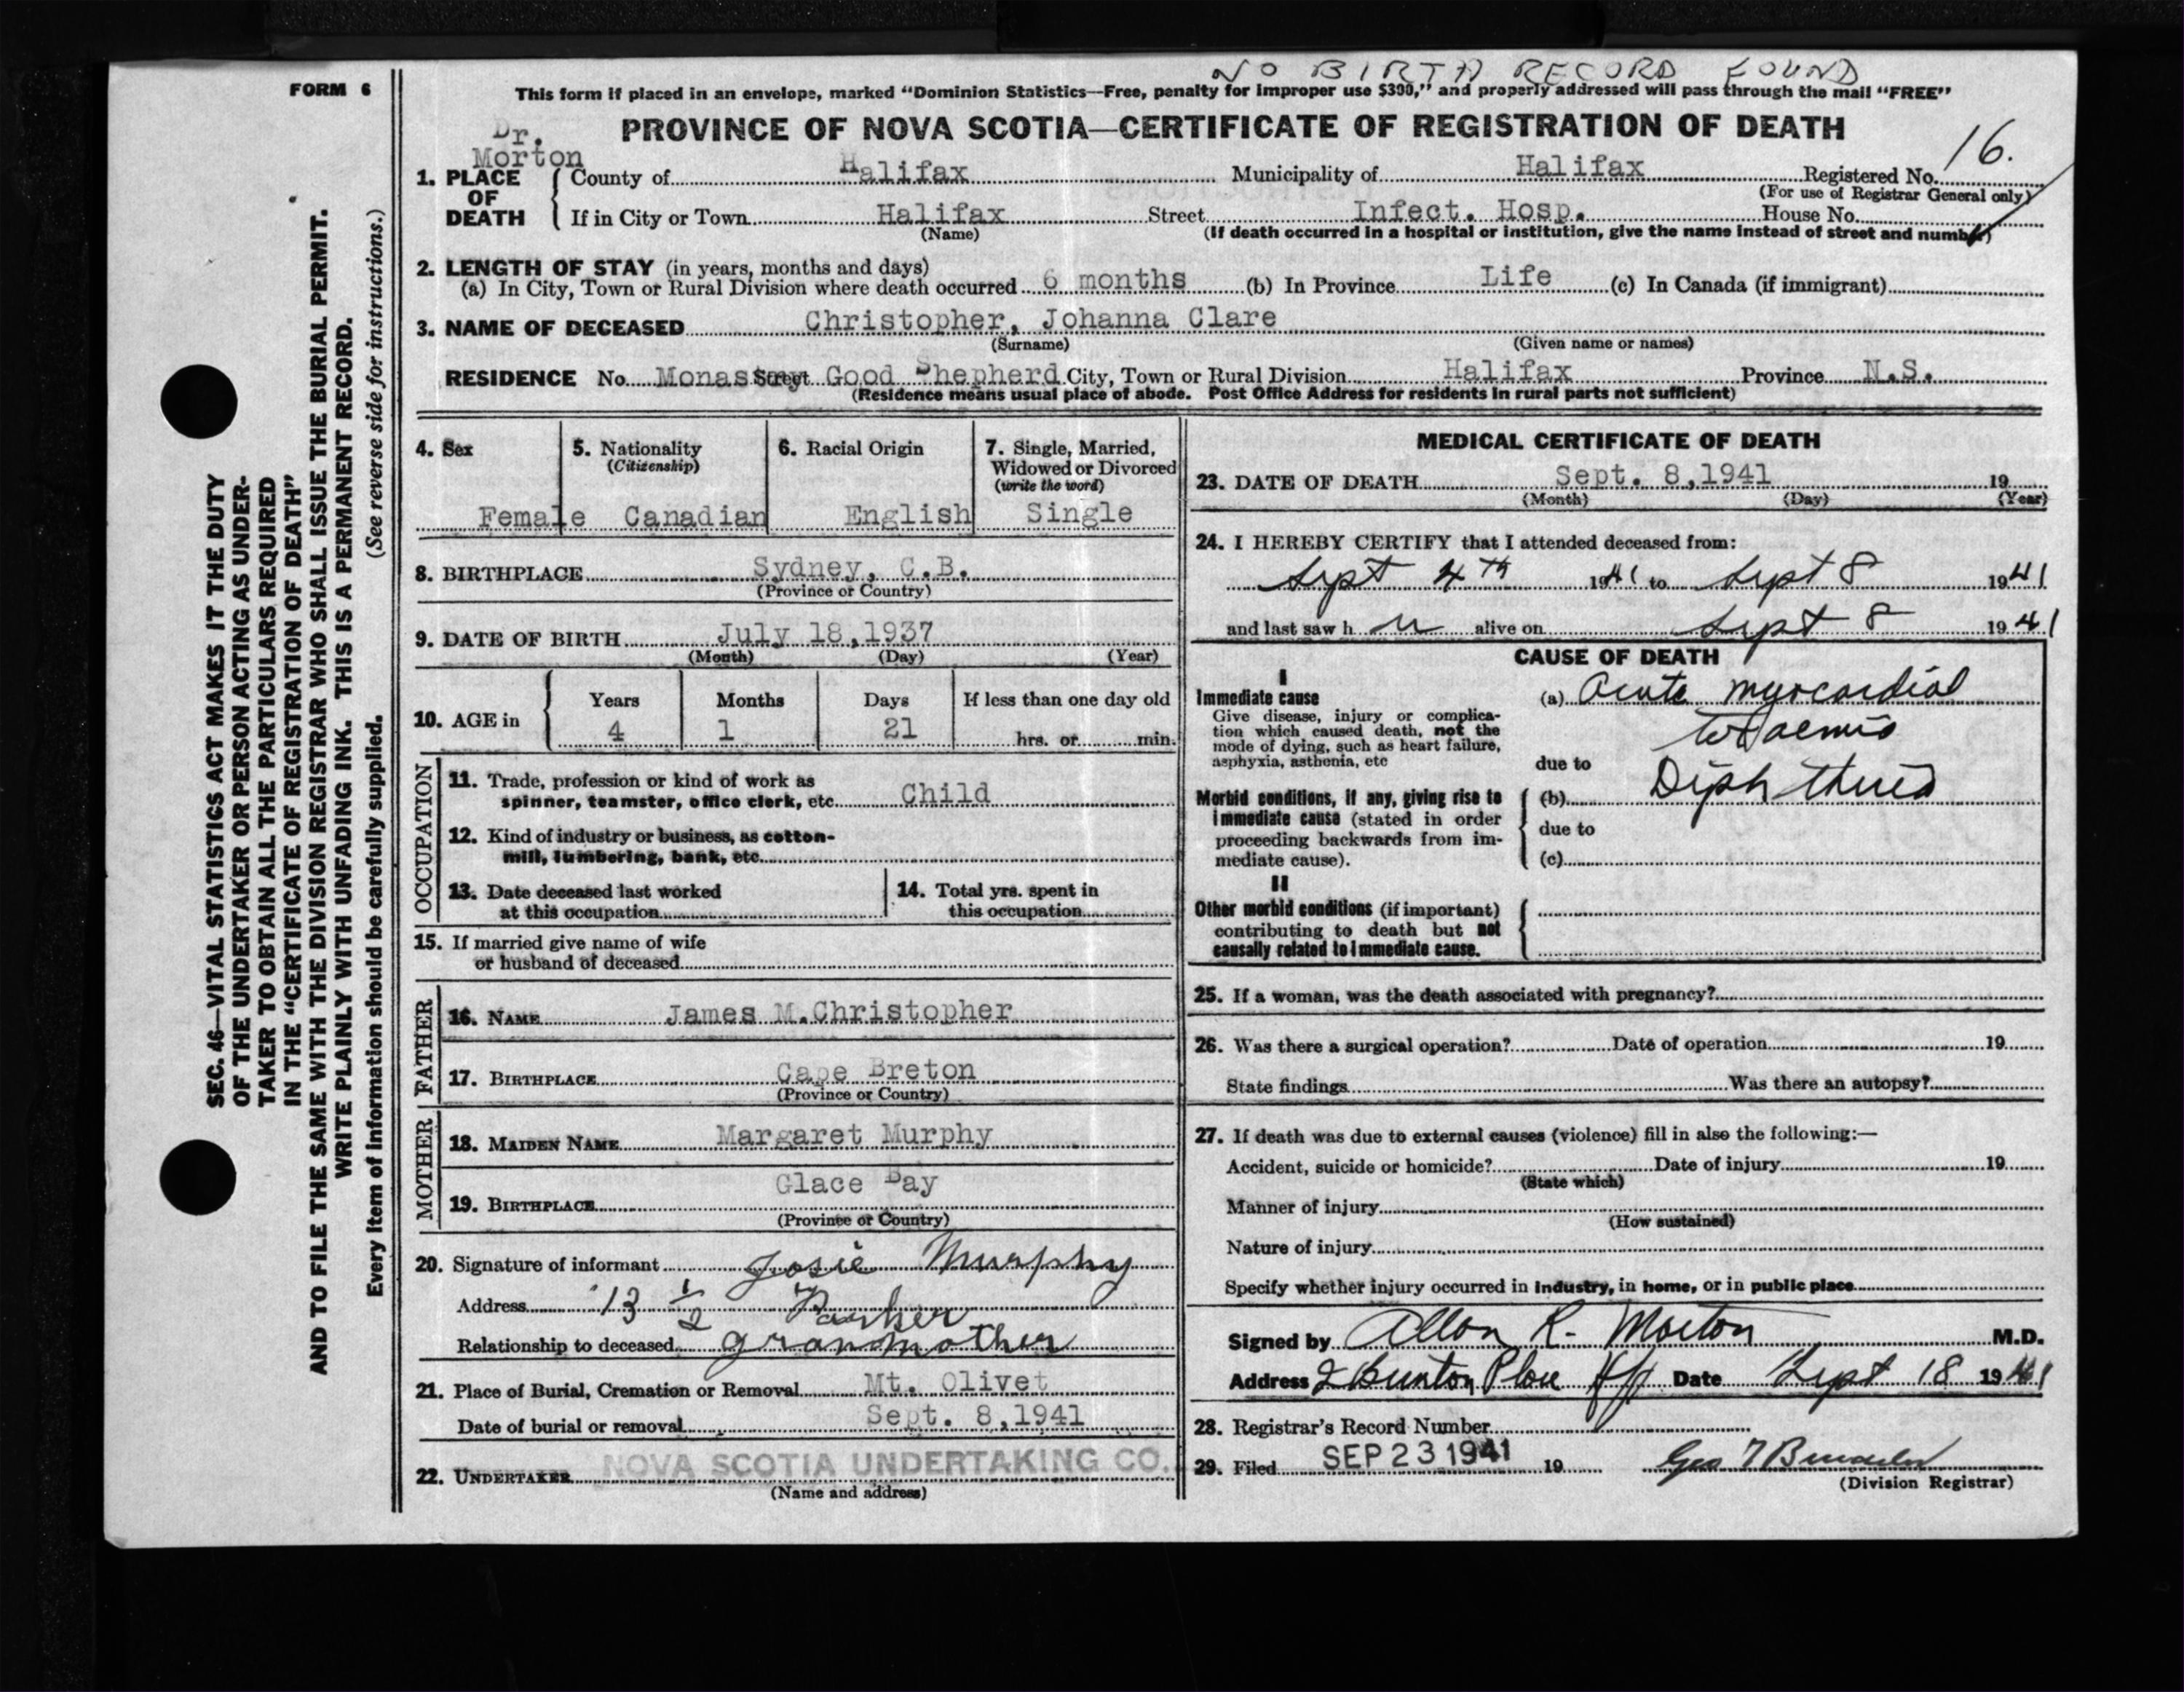 NO BIRTH RECORD FOUND
FORM 6
This form if placed in an envelope, marked "Dominion Statistics—Free, penalty for improper use $300," and properly addressed will pass through the mail "FREE"
PROVINCE OF NOVA SCOTIA—CERTIFICATE OF REGISTRATION OF DEATH
Dr.
Morton
16.
1. PLACE OF DEATH County of Halifax Municipality of Halifax Registered No.
(For use of Registrar General only)
If in City or Town Halifax Street Infect. Hosp. House No.
(Name) (If death occurred in a hospital or institution, give the name instead of street and number)
2. LENGTH OF STAY (in years, months and days)
(a) In City, Town or Rural Division where death occurred 6 months (b) In Province Life (c) In Canada (if immigrant)
3. NAME OF DECEASED Christopher, Johanna Clare
(Surname) (Given name or names)
RESIDENCE No. Monastery Street Good Shepherd City, Town or Rural Division Halifax Province N.S.
(Residence means usual place of abode. Post Office Address for residents in rural parts not sufficient)
4. Sex 5. Nationality 6. Racial Origin 7. Single, Married,
(Citizenship) Widowed or Divorced
(write the word)
Female Canadian English Single
8. BIRTHPLACE Sydney, C.B.
(Province or Country)
9. DATE OF BIRTH July 18,1937
(Month) (Day) (Year)
10. AGE in Years Months Days If less than one day old
4 1 21 hrs. or min.
OCCUPATION
11. Trade, profession or kind of work as
spinner, teamster, office clerk, etc. Child
12. Kind of industry or business, as cotton-
mill, lumbering, bank, etc.
13. Date deceased last worked
at this occupation
14. Total yrs. spent in
this occupation
15. If married give name of wife
or husband of deceased
FATHER
16. NAME James M.Christopher
17. BIRTHPLACE Cape Breton
(Province or Country)
MOTHER
18. MAIDEN NAME Margaret Murphy
19. BIRTHPLACE Glace Bay
(Province or Country)
20. Signature of informant Josie Murphy
Address 13 1/2 Parker
Relationship to deceased grandmother
21. Place of Burial, Cremation or Removal Mt. Olivet
Date of burial or removal Sept. 8,1941
22. UNDERTAKER NOVA SCOTIA UNDERTAKING CO.
(Name and address)
MEDICAL CERTIFICATE OF DEATH
23. DATE OF DEATH Sept. 8,1941 19
(Month) (Day) (Year)
24. I HEREBY CERTIFY that I attended deceased from:
Sept 4th 1941 to Sept 8 1941
and last saw h er alive on Sept 8 1941
CAUSE OF DEATH
I
Immediate cause
Give disease, injury or complica-
tion which caused death, not the
mode of dying, such as heart failure,
asphyxia, asthenia, etc
(a) Acute myocardial
due to
Morbid conditions, if any, giving rise to
immediate cause (stated in order
proceeding backwards from im-
mediate cause).
(b) Diphtheria
due to
(c)
II
Other morbid conditions (if important)
contributing to death but not
causally related to immediate cause.
25. If a woman, was the death associated with pregnancy?
26. Was there a surgical operation? Date of operation 19
State findings Was there an autopsy?
27. If death was due to external causes (violence) fill in also the following:—
Accident, suicide or homicide? Date of injury 19
(State which)
Manner of injury
(How sustained)
Nature of injury
Specify whether injury occurred in industry, in home, or in public place
Signed by Allan R. Morton M.D.
Address Place Date Sept 18 1941
28. Registrar's Record Number
29. Filed SEP 23 1941 19
(Division Registrar)
SEC. 46—VITAL STATISTICS ACT MAKES IT THE DUTY
OF THE UNDERTAKER OR PERSON ACTING AS UNDER-
TAKER TO OBTAIN ALL THE PARTICULARS REQUIRED
IN THE "CERTIFICATE OF REGISTRATION OF DEATH"
AND TO FILE THE SAME WITH THE DIVISION REGISTRAR WHO SHALL ISSUE THE BURIAL PERMIT.
WRITE PLAINLY WITH UNFADING INK. THIS IS A PERMANENT RECORD.
Every item of information should be carefully supplied. (See reverse side for instructions.)